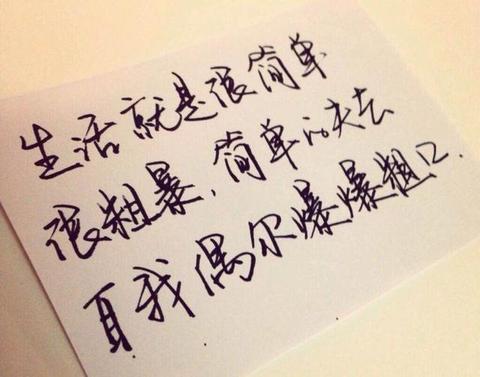 生活就是很简单
很粗暴，简单的失去
自我偶尔爆爆粗口.